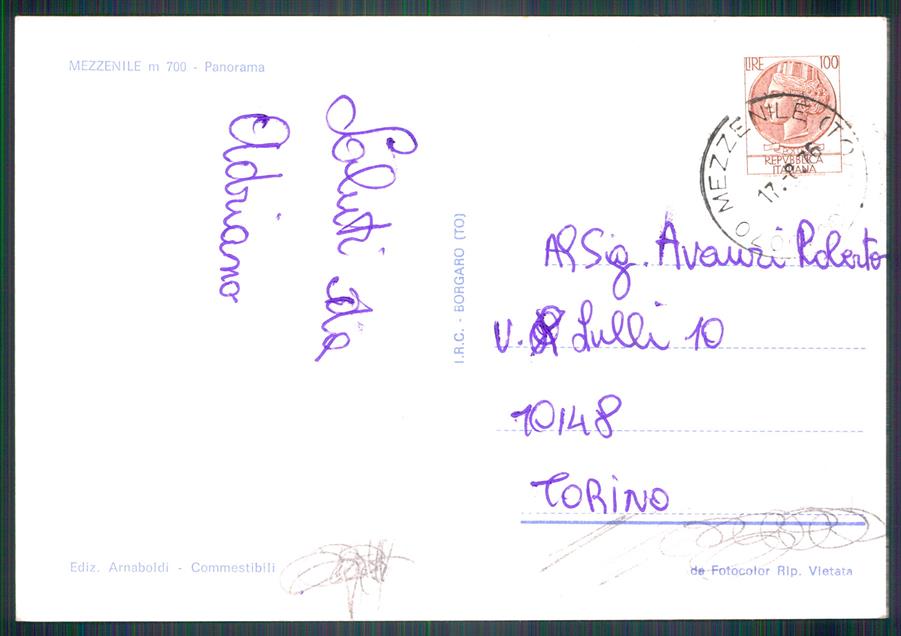 MEZZENILE m 700 - Panorama
Saluti Da
Adriano
I.R.C. - BORGARO (TO)
LIRE 100
REPVBBLICA
ITALIANA
MEZZENILE (TO
17.-8.76
Al Sig. Avauri Roberto
V. Lulli 10
10148
TORINO
Ediz. Arnaboldi - Commestibili
da Fotocolor Rip. Vietata